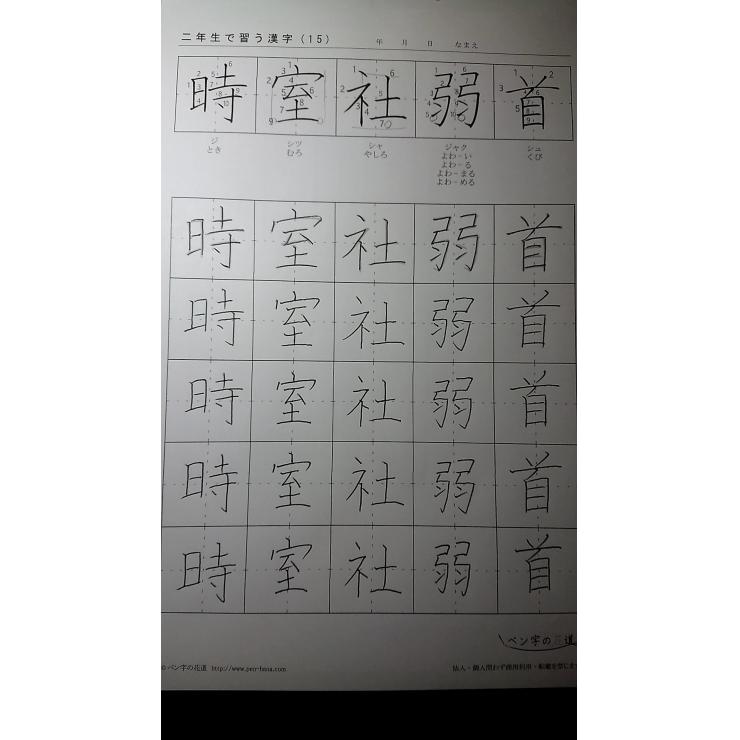 二年生で習う漢字（15） 年 月 日 なまえ
時 室 社 弱 首
ジ シツ シャ ジャク シュ
とき むろ やしろ よわ－い くび
よわ－る
よわ－まる
よわ－める
時 室 社 弱 首
時 室 社 弱 首
時 室 社 弱 首
時 室 社 弱 首
時 室 社 弱 首
ペン字の花道
©ペン字の花道 http://www.pen-hana.com 法人・個人問わず商用利用・転載を禁じます